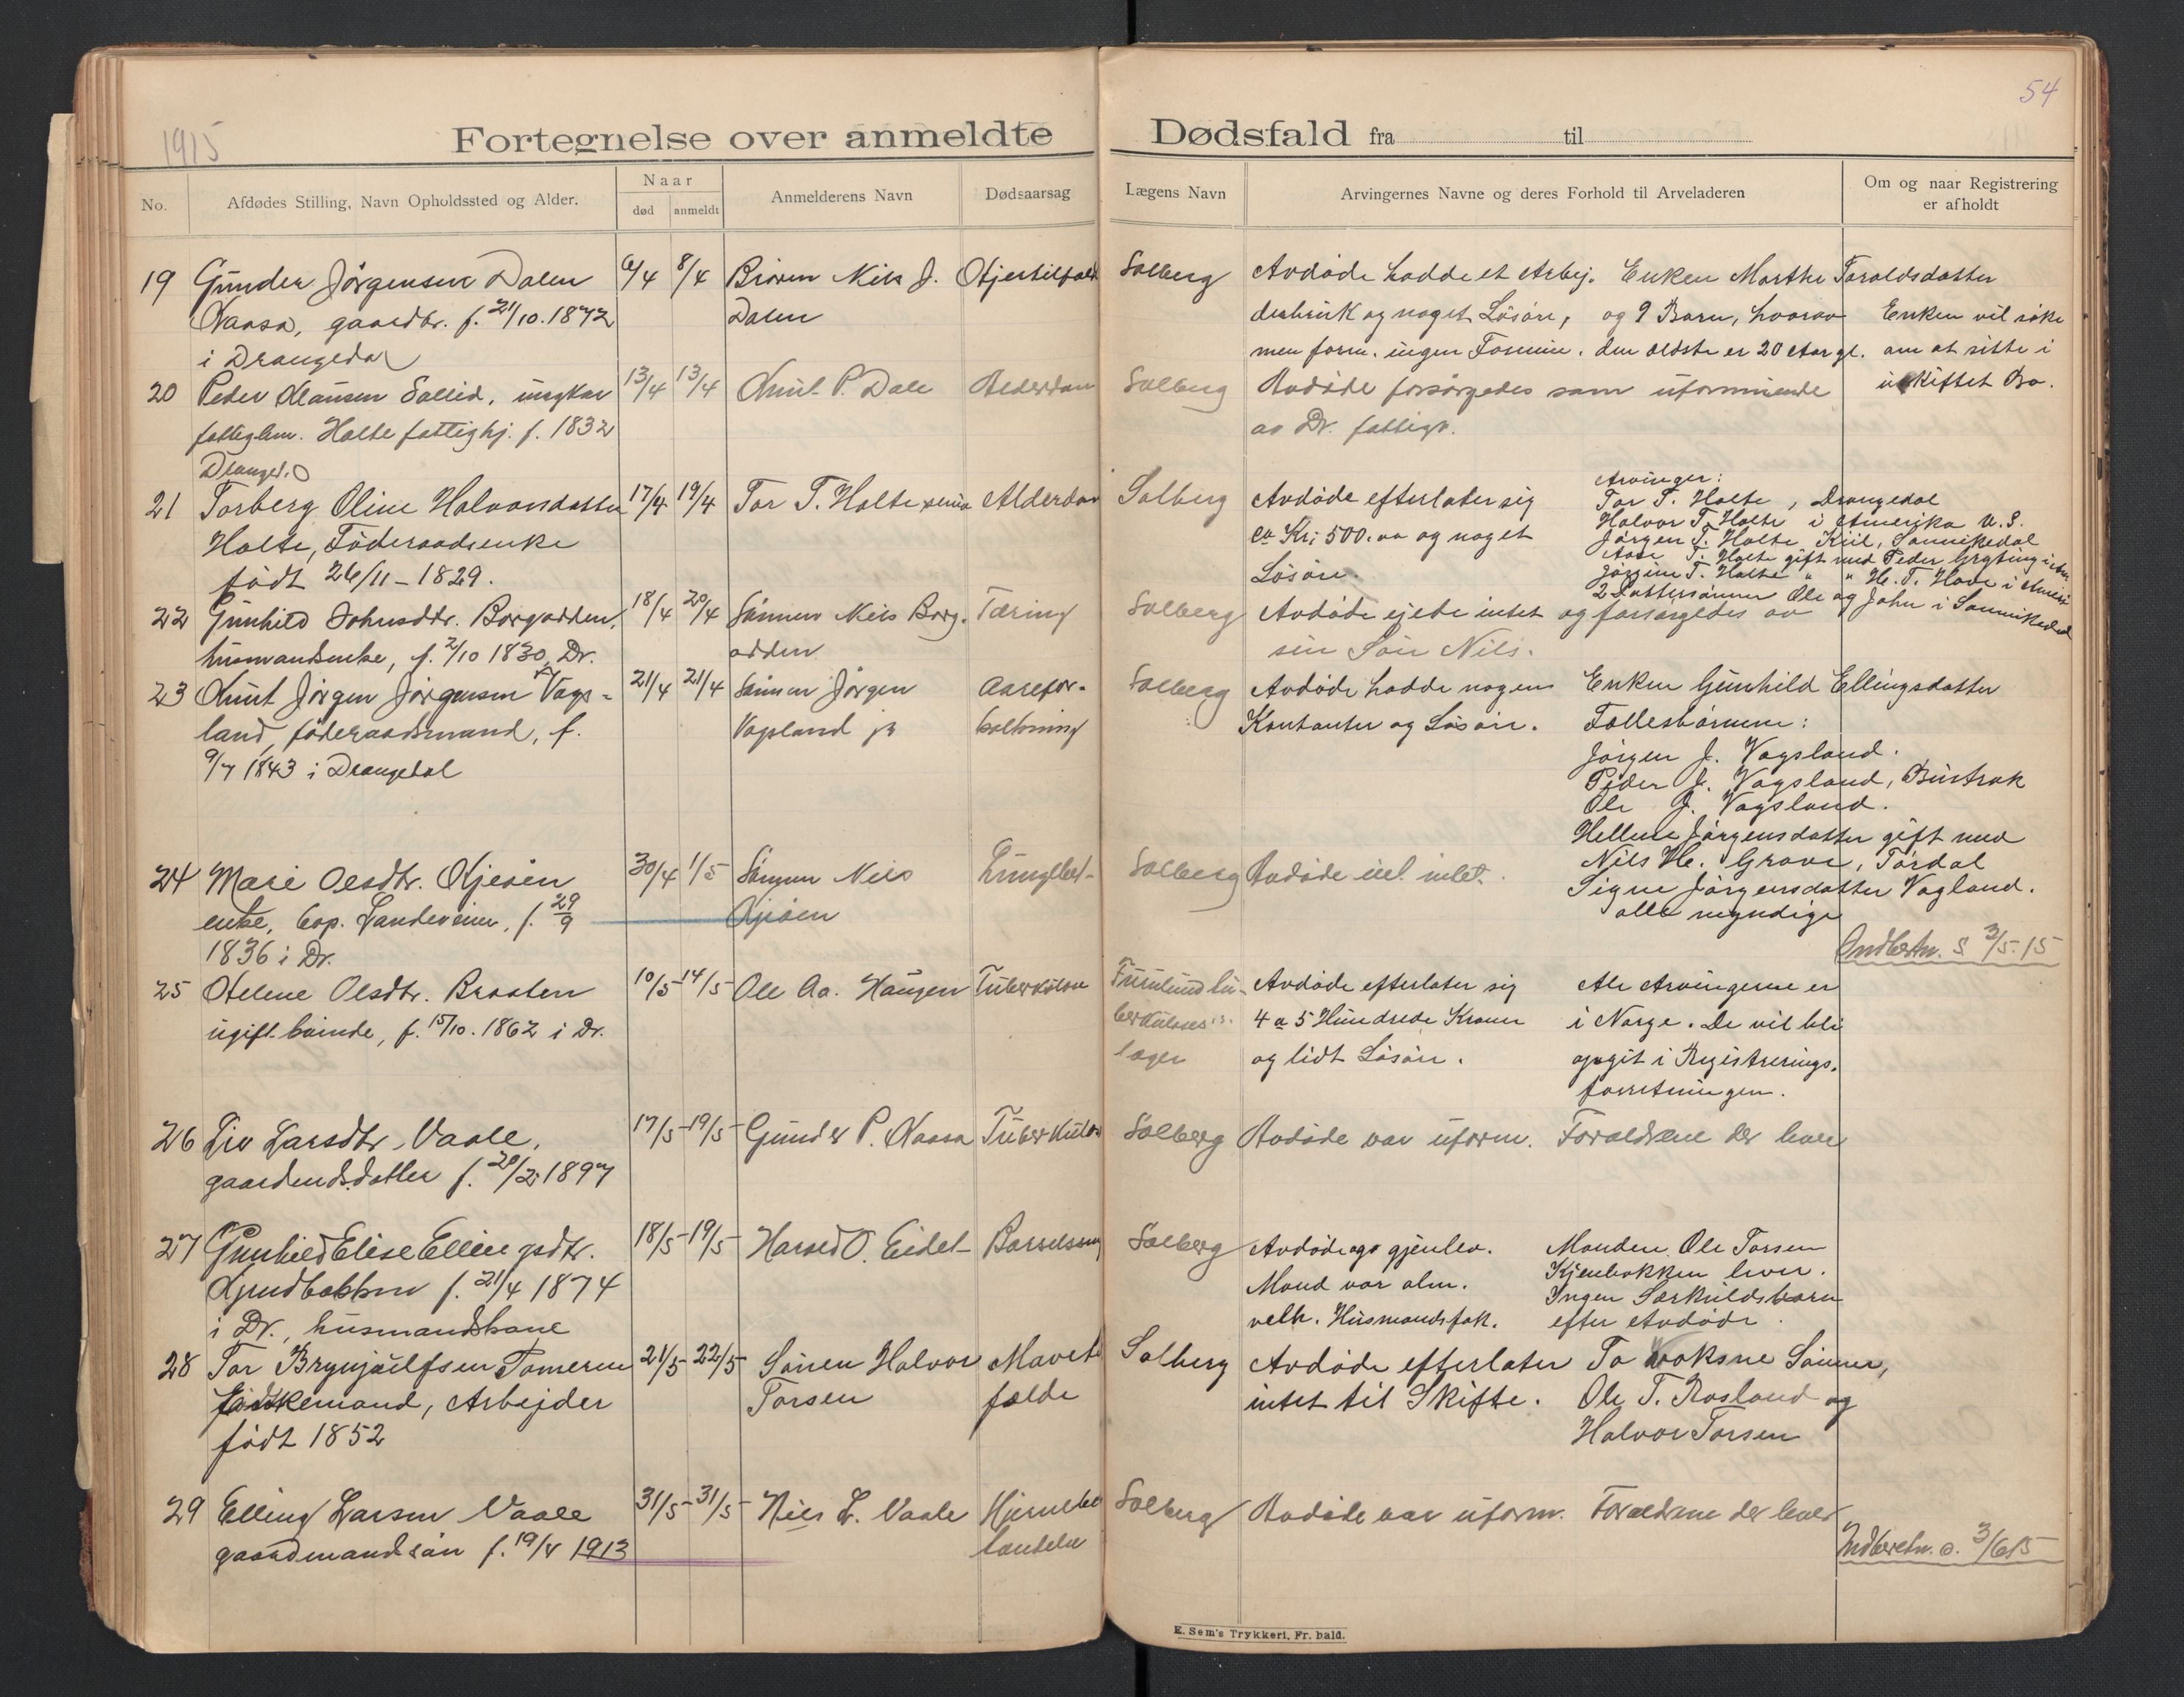 54
1915
Fortegnelse over anmeldte Dødsfald fra til
No.
Afdødes Stilling, Navn Opholdssted og Alder.
Naar
død
anmeldt
Anmelderens Navn
Dødsaarsag
Lægens Navn
Arvingernes Navne og deres Forhold til Arveladeren
Om og naar Registrering
er afholdt
19 Gunder Jörgensen Dalen 6/4 8/4 Broren Nils J. Solberg Avdöde hadde et Arbej. Enken Marthe Taraldsdatter
Naasa, gaardbr. f. 21/10.1872 Dalen derbruk og noget Lösöre, og 9 Barn, hvorav Enken vil söke
i Drangedal men form. ingen Formue. den ældste er 20 Aar gl. om at sitte i
uskiftet Bo.
20 Peder Hansen Sollid, ungkar 13/4 13/4 Knut P. Dale Alderdom Solberg Avdöde forsörgedes som uformuende
fattiglem. Holte fattighj. f. 1832 av Dr. fattigv.
Dranged.
21 Torberg Oline Halvorsdatter 17/4 19/4 Tor T. Holte senior Alderdom Solberg Avdöde efterlater sig
Holte, Föderaadsenke ca Kr. 500.00 og noget
født 26/11-1829. Lösöre.
Arvinger:
Tor T. Holte, Drangedal
Halvor T. Holte i Amerika U.S.
Jörgen T. Holte Kiil, Sannikedal
Aase T. Holte gift med Peder
Jörgine T. Holte " " H. T. Hove i Amerika
2 Dattersönner Ole og John i Sannikedal
22 Gunhild Johnsdtr. Borgodden, 18/4 20/4 Sönnen Nils Borg- Tæring Solberg Avdöde ejede intet og forsörgedes av
husmandsenke, f. 2/10 1830, Dr. odden sin Sön Nils.
23 Knut Jörgen Jörgensen Vogs- 21/4 21/4 Sönnen Jörgen Aarefor- Solberg Avdöde hadde nogen Enken Gunhild Ellingsdatter
land, föderaadsmand, f. Vogsland jr kalkning Kontanter og Lösöre. Fællesbörnene:
9/7 1843 i Drangedal
Jörgen J. Vogsland.
Peder J. Vogsland, Bustrak
Ole J. Vogsland.
Hellene Jörgensdatter gift med
Nils H. Grave, Tördal
Signe Jörgensdatter Vogland.
alle myndige
24 Mari Olsdtr. Kjeöen 30/4 1/5 Sönnen Nils Solberg Avdöde eiet intet.
enke, f. 29/9
1836 i Dr.
Indberetn. s 3/5.15
25 Helene Olsdtr. Braaten 10/5 14/5 Ole Aa. Haugen Tuberkulose Furulund tu- Avdöde efterlater sig Ale Arvingerne er
ugift bunde, f. 15/10.1862 i Dr. berkuloses. 4 a 5 Hundrede Kroner i Norge. De vil bli
læge og lidt Lösöre. opgit i Registrerings-
forretningen.
26 Liv Larsdtr. Vaale, 17/5 19/5 Gunder P. Naasa Tuberkulose Solberg Avdöde var uform. Forældrene der lever
gaardmdsdatter f. 20/2 1897
27 Gunhild Elise Ellingsdtr. 18/5 19/5 Harald O. Eidet Solberg Avdöde og gjenlev. Manden Ole Torsen
f. 21/4 1874 Mand var alm. Kjenbakken lever.
i Dr., husmandskone velh. Husmandsfok. Ingen Særkuldsbarn
efter Avdöde.
28 Tor Brynjulfsen Tomeren 21/5 22/5 Sönen Halvor Mavek Solberg Avdöde efterlater To voksne Sönner,
Enkemand, Arbejder Torsen intet til Skifte. Ole T. Rosland og
födt 1852 Halvor Torsen
29 Elling Larsen Vaale 31/5 31/5 Nils L. Vaale Hjernebe- Solberg Avdöde var uform. Forældrene der lever
gaardmandssön f. 19/4 1913 tændelse
Indberetn. s. 3/6 15
E. Sem's Trykkeri, Fr. hald.